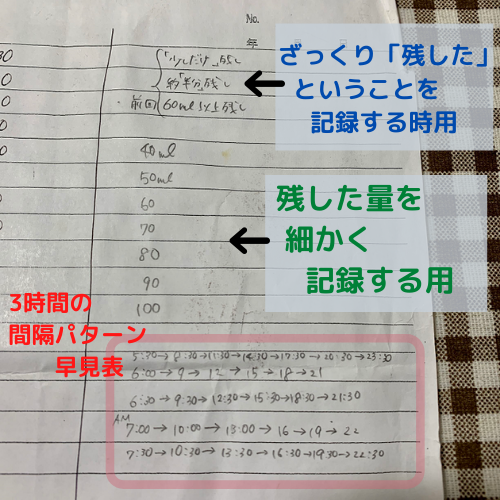 No.
年
ざっくり「残した」
ということを
記録する時用
30
0
0
0
0
「少しだけ」残し
約「半分」残し
前回 60ml以上残し
40ml
50ml
60
70
80
90
100
残した量を
細かく
記録する用
3時間の
間隔パターン
早見表
5:30→8:30→11:30→14:30→17:30→20:30→23:30
6:00→9→12→15→18→21
6:30→9:30→12:30→15:30→18:30→21:30
AM
7:00→10:00→13:00→16→19→22
7:30→10:30→13:30→16:30→19:30→22:30